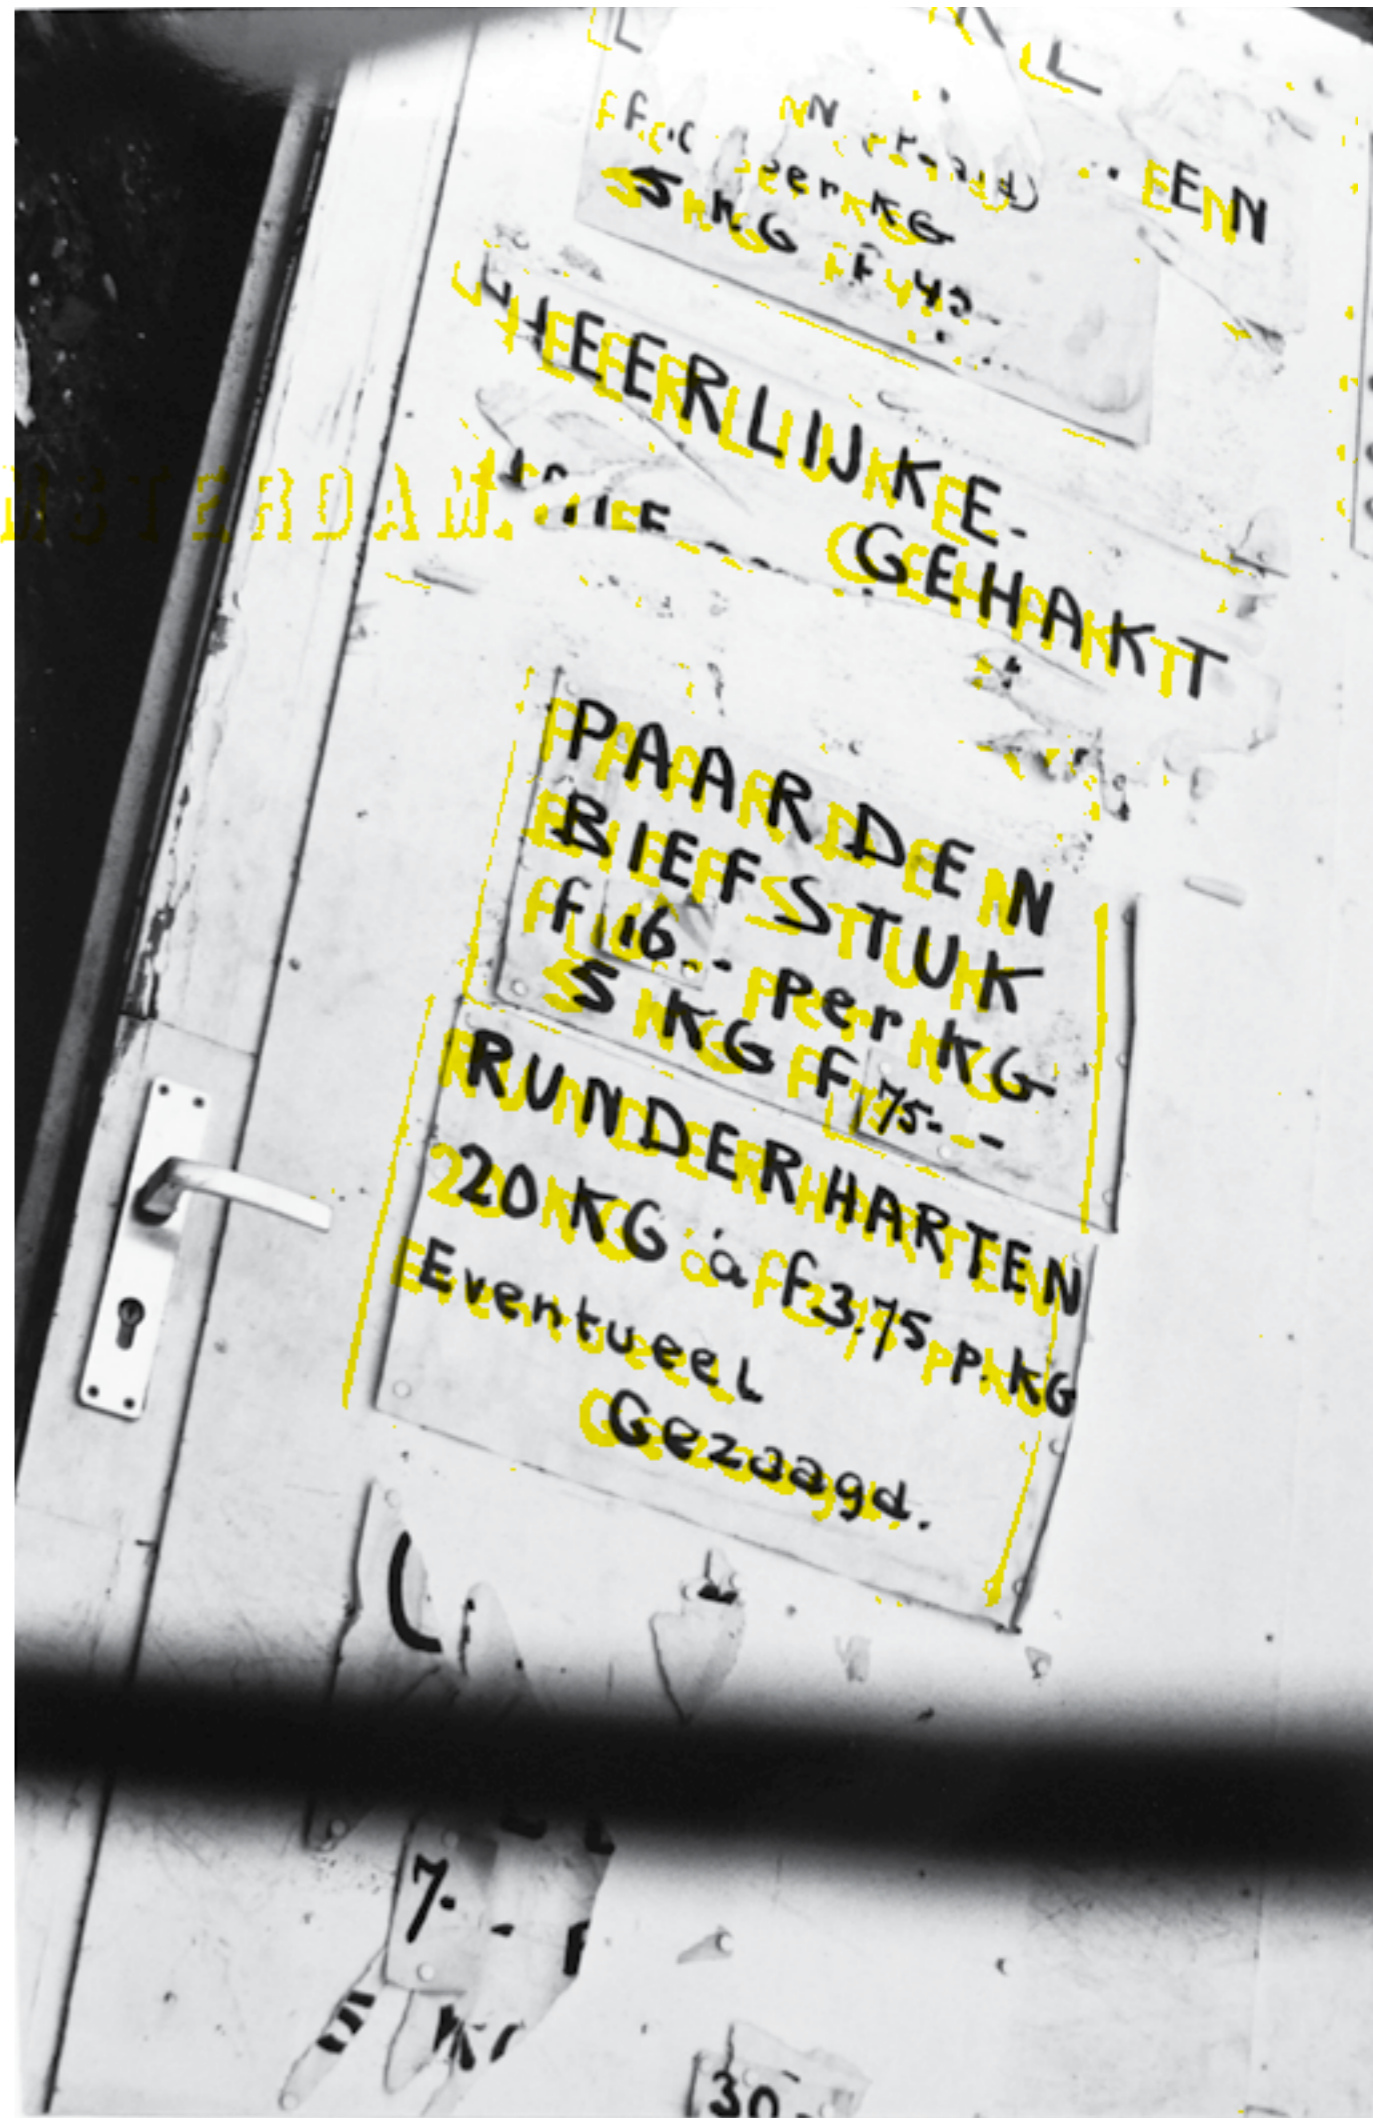 EEN
per KG
5 KG f 45-
HEERLIJKE-
GEHAKT
AMSTERDAM.
PAARDEN
BIEFSTUK
f 16.- per KG
5 KG f 75.-
RUNDERHARTEN
20 KG à f 3.75 p. KG
Eventueel
Gezaagd.
7.-
30.-